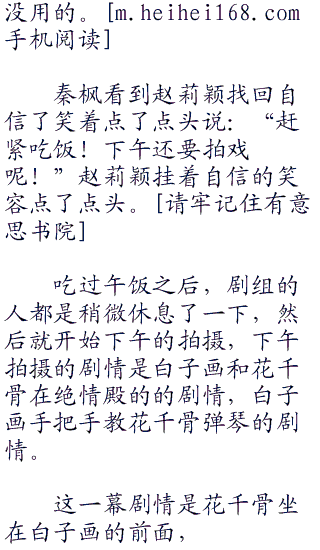 没用的。[m.heihei168.com
手机阅读]
秦枫看到赵莉颖找回自
信了笑着点了点头说：“赶
紧吃饭！下午还要拍戏
呢！”赵莉颖挂着自信的笑
容点了点头。[请牢记住有意
思书院]
吃过午饭之后，剧组的
人都是稍微休息了一下，然
后就开始下午的拍摄，下午
拍摄的剧情是白子画和花千
骨在绝情殿的的剧情，白子
画手把手教花千骨弹琴的剧
情。
这一幕剧情是花千骨坐
在白子画的前面，